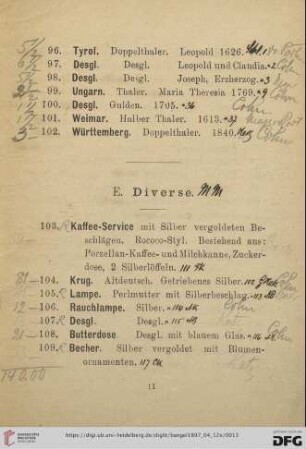 96. Tyrol. Doppelthaler. Leopold 1626.
97. Desgl. Desgl. Leopold und Claudia. Cohn
98. Desgl. Desgl. Joseph, Erzherzog.
99. Ungarn. Thaler. Maria Theresia 1769. Cohn
100. Desgl. Gulden. 1705. Cohn
101. Weimar. Halber Thaler. 1613.
102. Württemberg. Doppelthaler. 1840. Cohn
E. Diverse.
103. R Kaffee-Service mit Silber vergoldeten Be-
schlägen. Rococo-Styl. Bestehend aus:
Porzellan-Kaffee- und Milchkanne, Zucker-
dose, 2 Silberlöffeln. 111
104. Krug. Altdeutsch. Getriebenes Silber. 112
105. R Lampe. Perlmutter mit Silberbeschlag. 113
12 — 106. Rauchlampe. Silber. Cohn
107. R Desgl. Desgl. 115
21 — 108. Butterdose Desgl. mit blauem Glas. 116 Cohn
109. R Becher. Silber vergoldet mit Blumen-
ornamenten. 117
11
https://digi.ub.uni-heidelberg.de/diglit/bangel1897_04_12a/0013
© Universitätsbibliothek Heidelberg
gefördert durch die
DFG